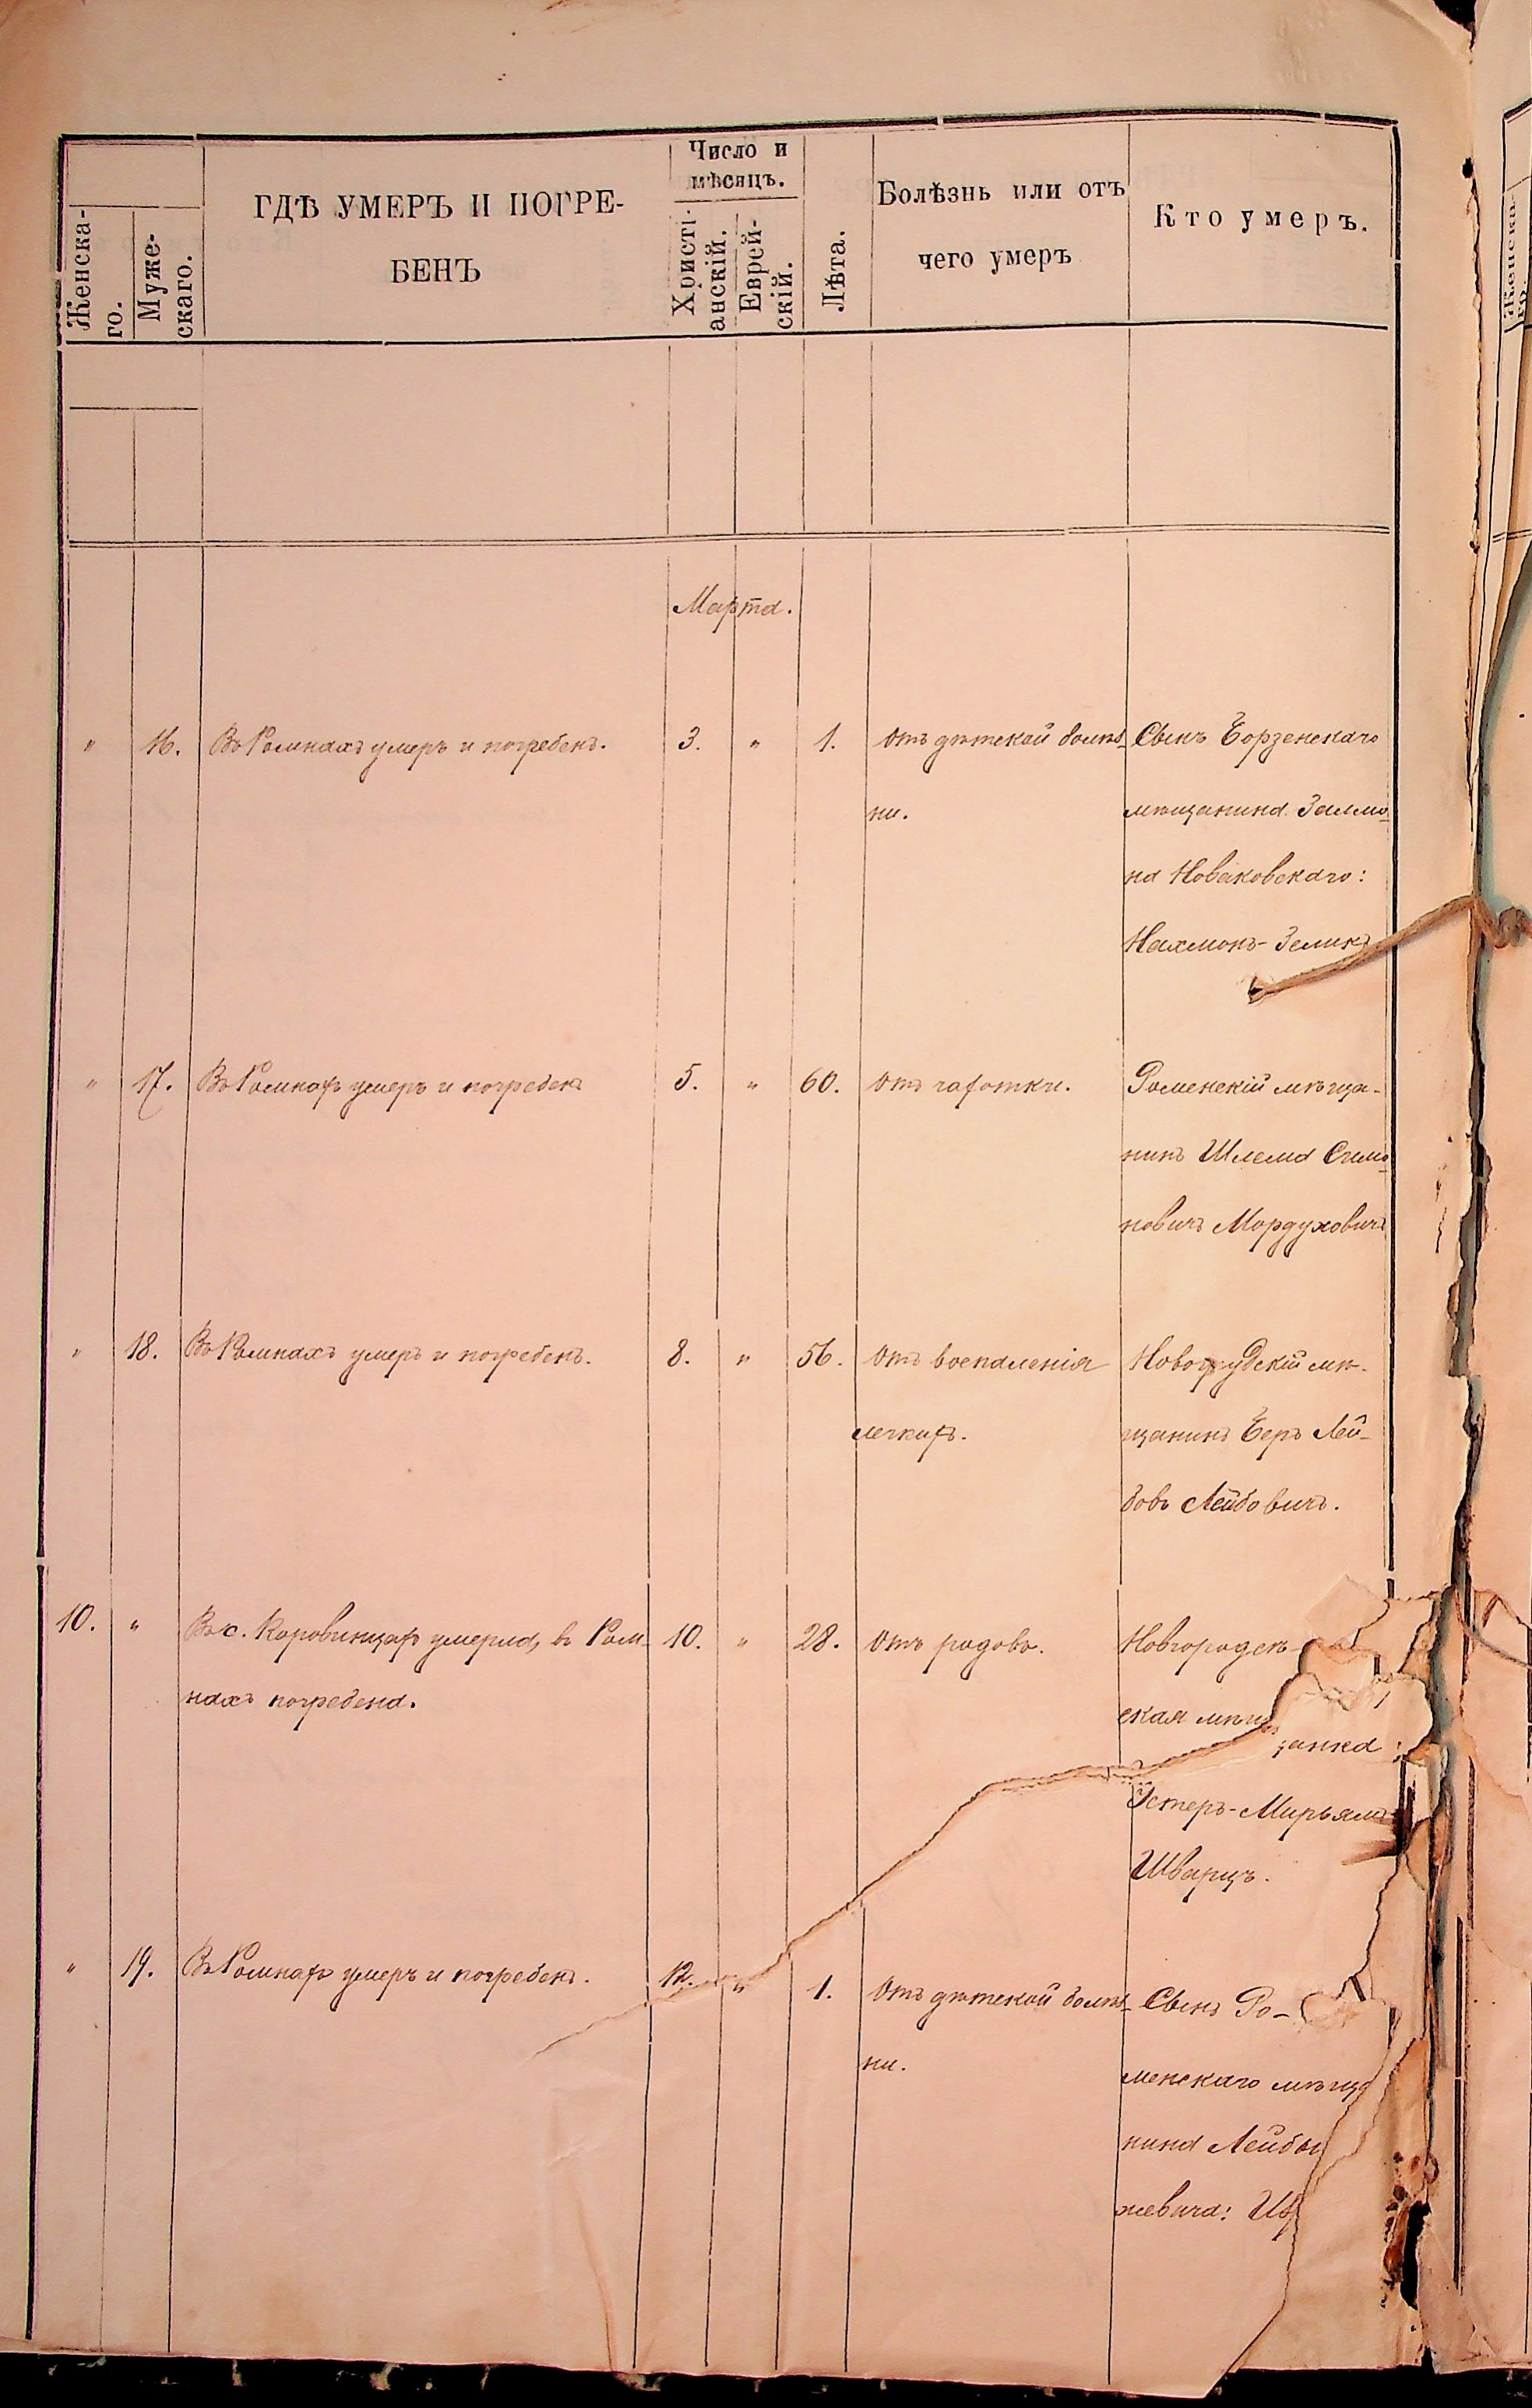 Женска-
го.
Муже-
скаго.
ГДѢ УМЕРЪ И ПОГРЕ-
БЕНЪ
Число и
мѣсяцъ.
Христі-
анскій.
Еврей-
скій.
Лѣта.
Болѣзнь или отъ
чего умеръ
Кто умеръ.
Марта.
" 16. Въ Ромнахъ умеръ и погребенъ. 3. " 1. Отъ дѣтской болѣз- Сынъ Борзенскаго
ни. мѣщанина Залмо-
на Новаковскаго:
Нахмонъ-Зеликъ
" 17. Въ Ромнахъ умеръ и погребенъ 5. " 60. Отъ чахотки. Роменскій мѣща-
нинъ Шлема Симо-
новичъ Мордуховичъ
" 18. Въ Ромнахъ умеръ и погребенъ. 8. " 56. Отъ воспаленія Новогрудскій мѣ-
легкихъ. щанинъ Беръ Лей-
бовъ Лейбовичъ.
10. " Въ с. Коровинцахъ умерла, въ Ром- 10. " 28. Отъ родовъ. Новгородсѣ-
нахъ погребена. ская мѣщанка:
Эстеръ-Мирьямъ
Шварцъ.
" 19. Въ Ромнахъ умеръ и погребенъ. 12. " 1. Отъ дѣтской болѣз- Сынъ Ро-
ни. менскаго мѣща
нина Лейбы
жевича: